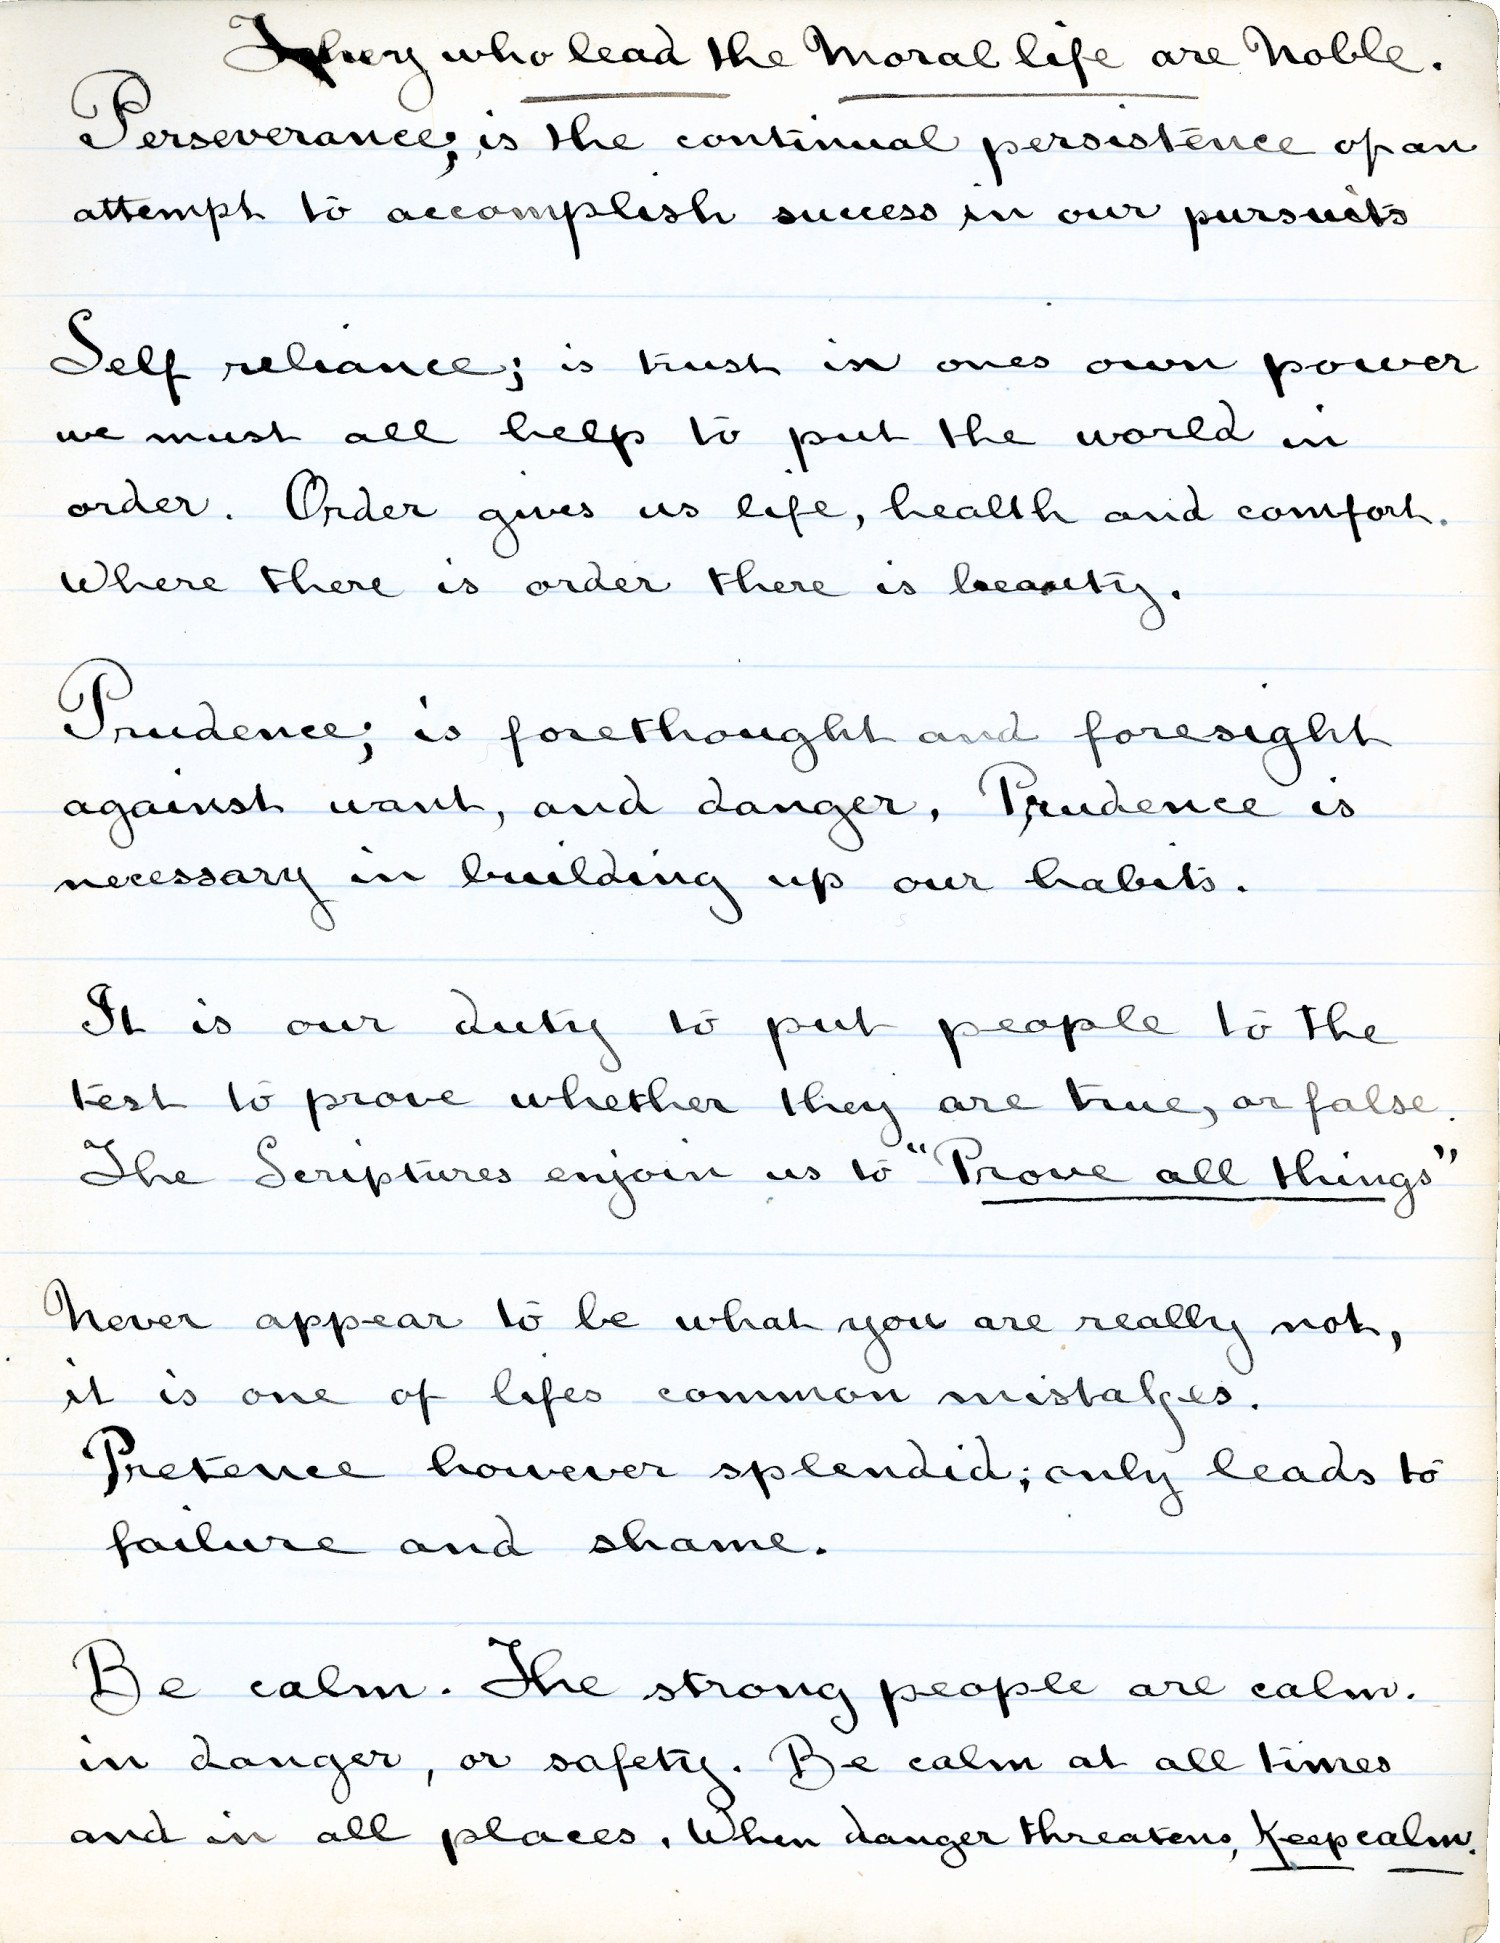 They who lead the Moral life are Noble.
Perseverance; is the continual persistence of an
attempt to accomplish success in our pursuits
Self reliance; is trust in ones own power
we must all help to put the world in
order. Order gives us life, health and comfort.
Where there is order there is beauty.
Prudence; is forethought and foresight
against want, and danger. Prudence is
necessary in building up our habits.
It is our duty to put people to the
test to prove whether they are true, or false.
The Scriptures enjoin us to "Prove all things"
Never appear to be what you are really not,
it is one of lifes common mistakes.
Pretence however splendid; only leads to
failure and shame.
Be calm. The strong people are calm.
in danger, or safety. Be calm at all times
and in all places. When danger threatens, Keep calm.